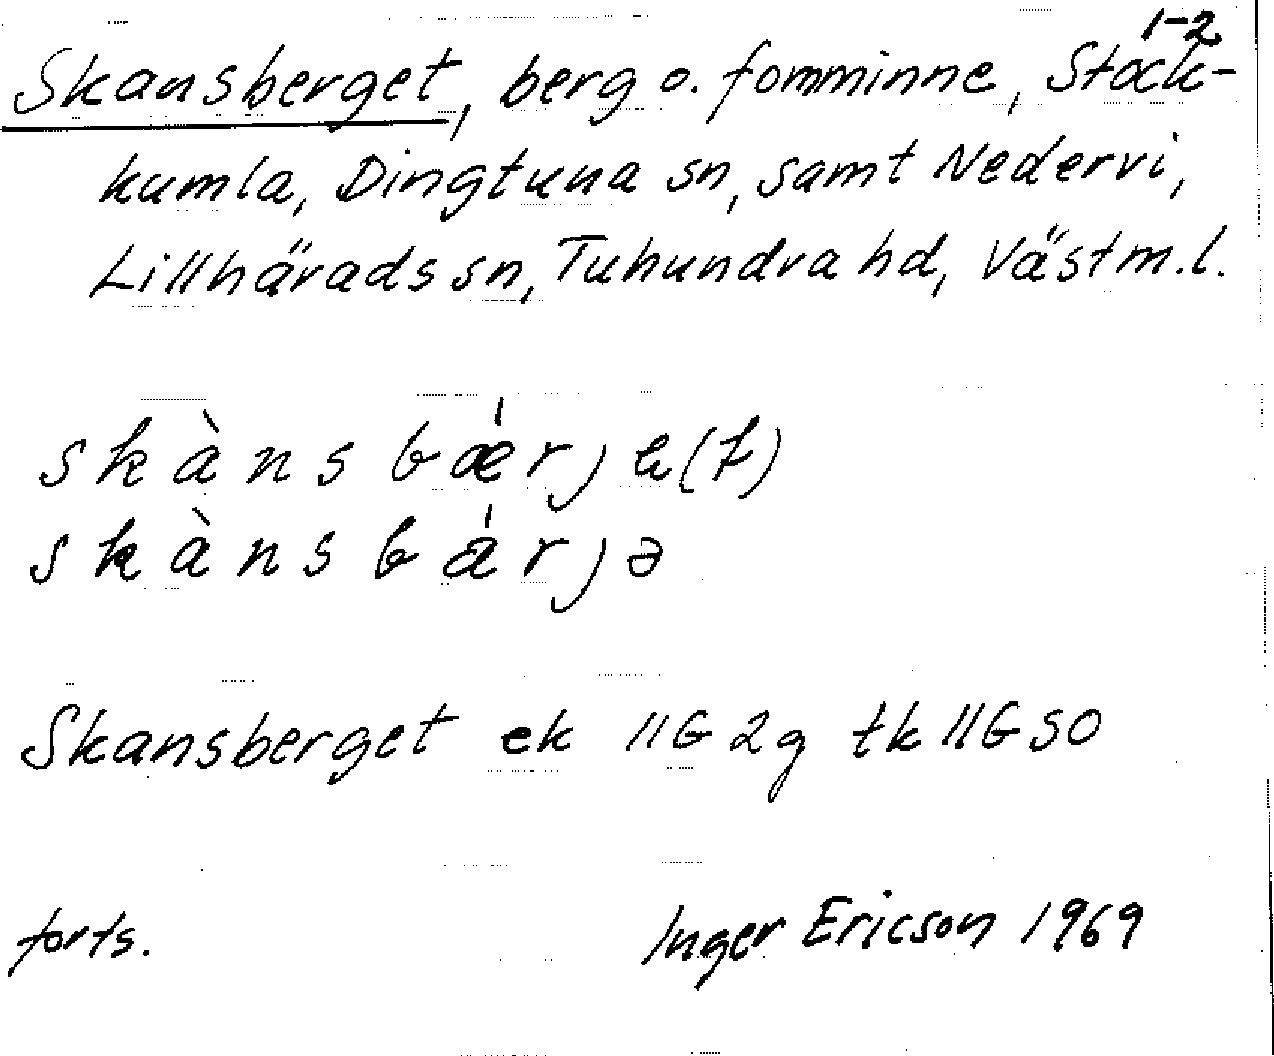 1-2
Skansberget, berg o. fornminne, Stock-
kumla, Dingtuna sn, samt Nedervi,
Lillhärads sn, Tuhundra hd, Västm.l.
skànsbǽrje(t)
skànsbárjə
Skansberget ek 11G 2g tk 11G SO
forts. Inger Ericson 1969